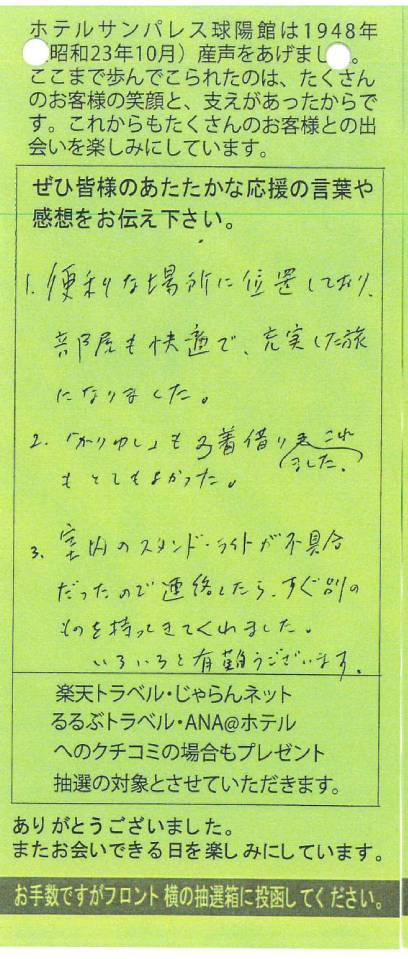 ホテルサンパレス球陽館は1948年
昭和23年10月）産声をあげまし。
ここまで歩んでこられたのは、たくさん
のお客様の笑顔と、支えがあったからで
す。これからもたくさんのお客様との出
会いを楽しみにしています。
ぜひ皆様のあたたかな応援の言葉や
感想をお伝え下さい。
1. 便利な場所に位置しており、
部屋も快適で、充実した旅
になりました。
2. 「かりゆし」も3着借りました。これ
もとてもよかった。
3. 室内のスタンド・ライトが不具合
だったので連絡したら、すぐ別の
ものを持ってきてくれました。
いろいろと有難うございます。
楽天トラベル・じゃらんネット
るるぶトラベル・ANA@ホテル
へのクチコミの場合もプレゼント
抽選の対象とさせていただきます。
ありがとうございました。
またお会いできる日を楽しみにしています。
お手数ですがフロント横の抽選箱に投函してください。